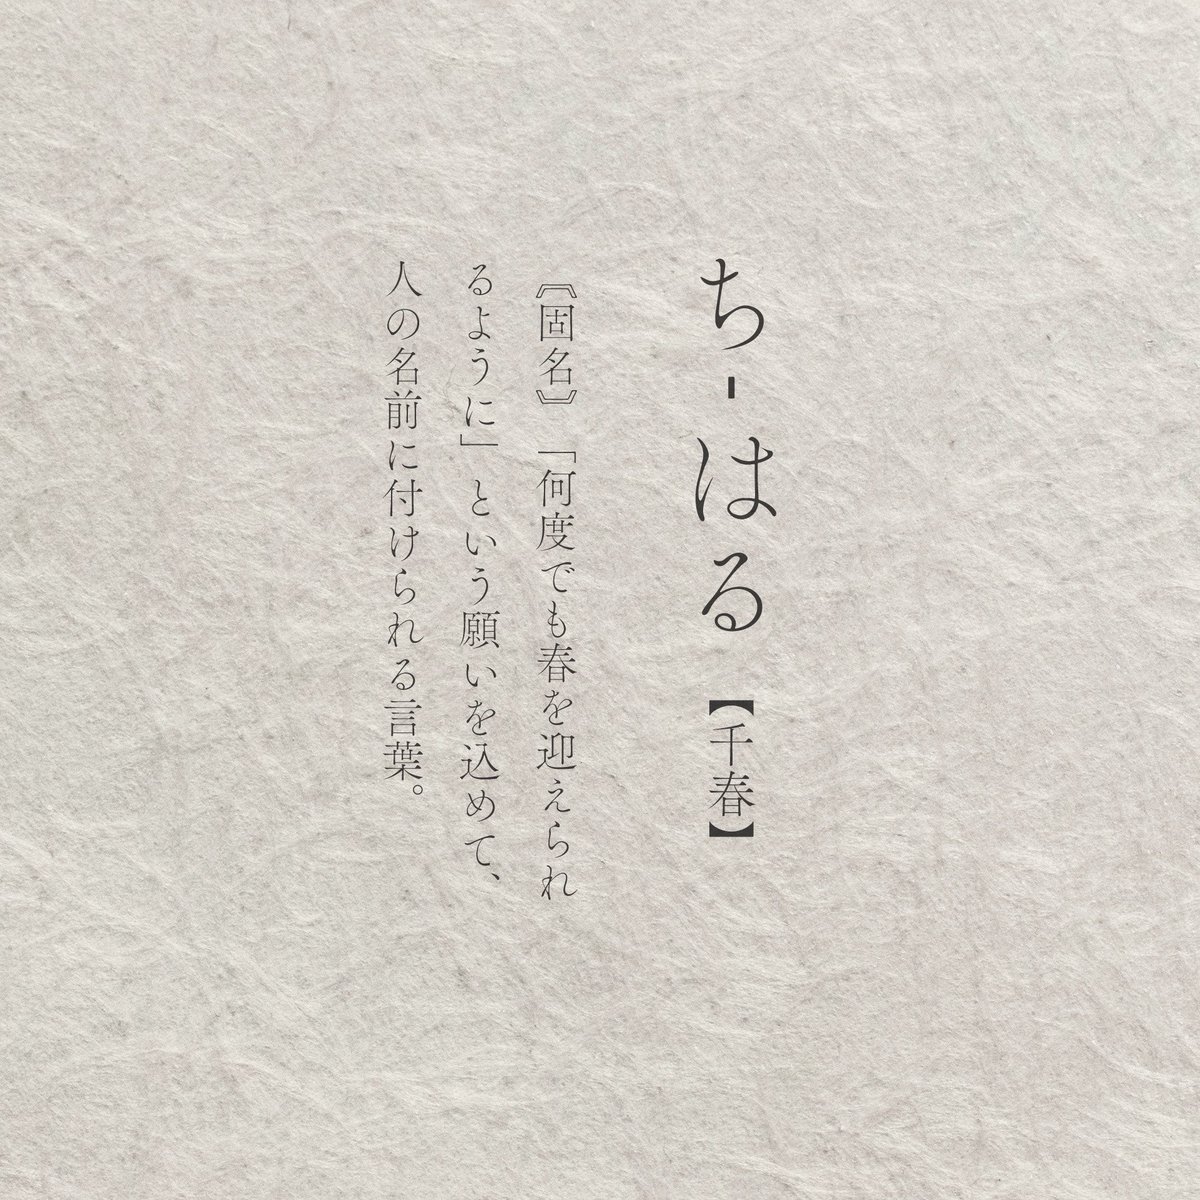 ち-はる【千春】
〘固名〙「何度でも春を迎えられ
るように」という願いを込めて、
人の名前に付けられる言葉。